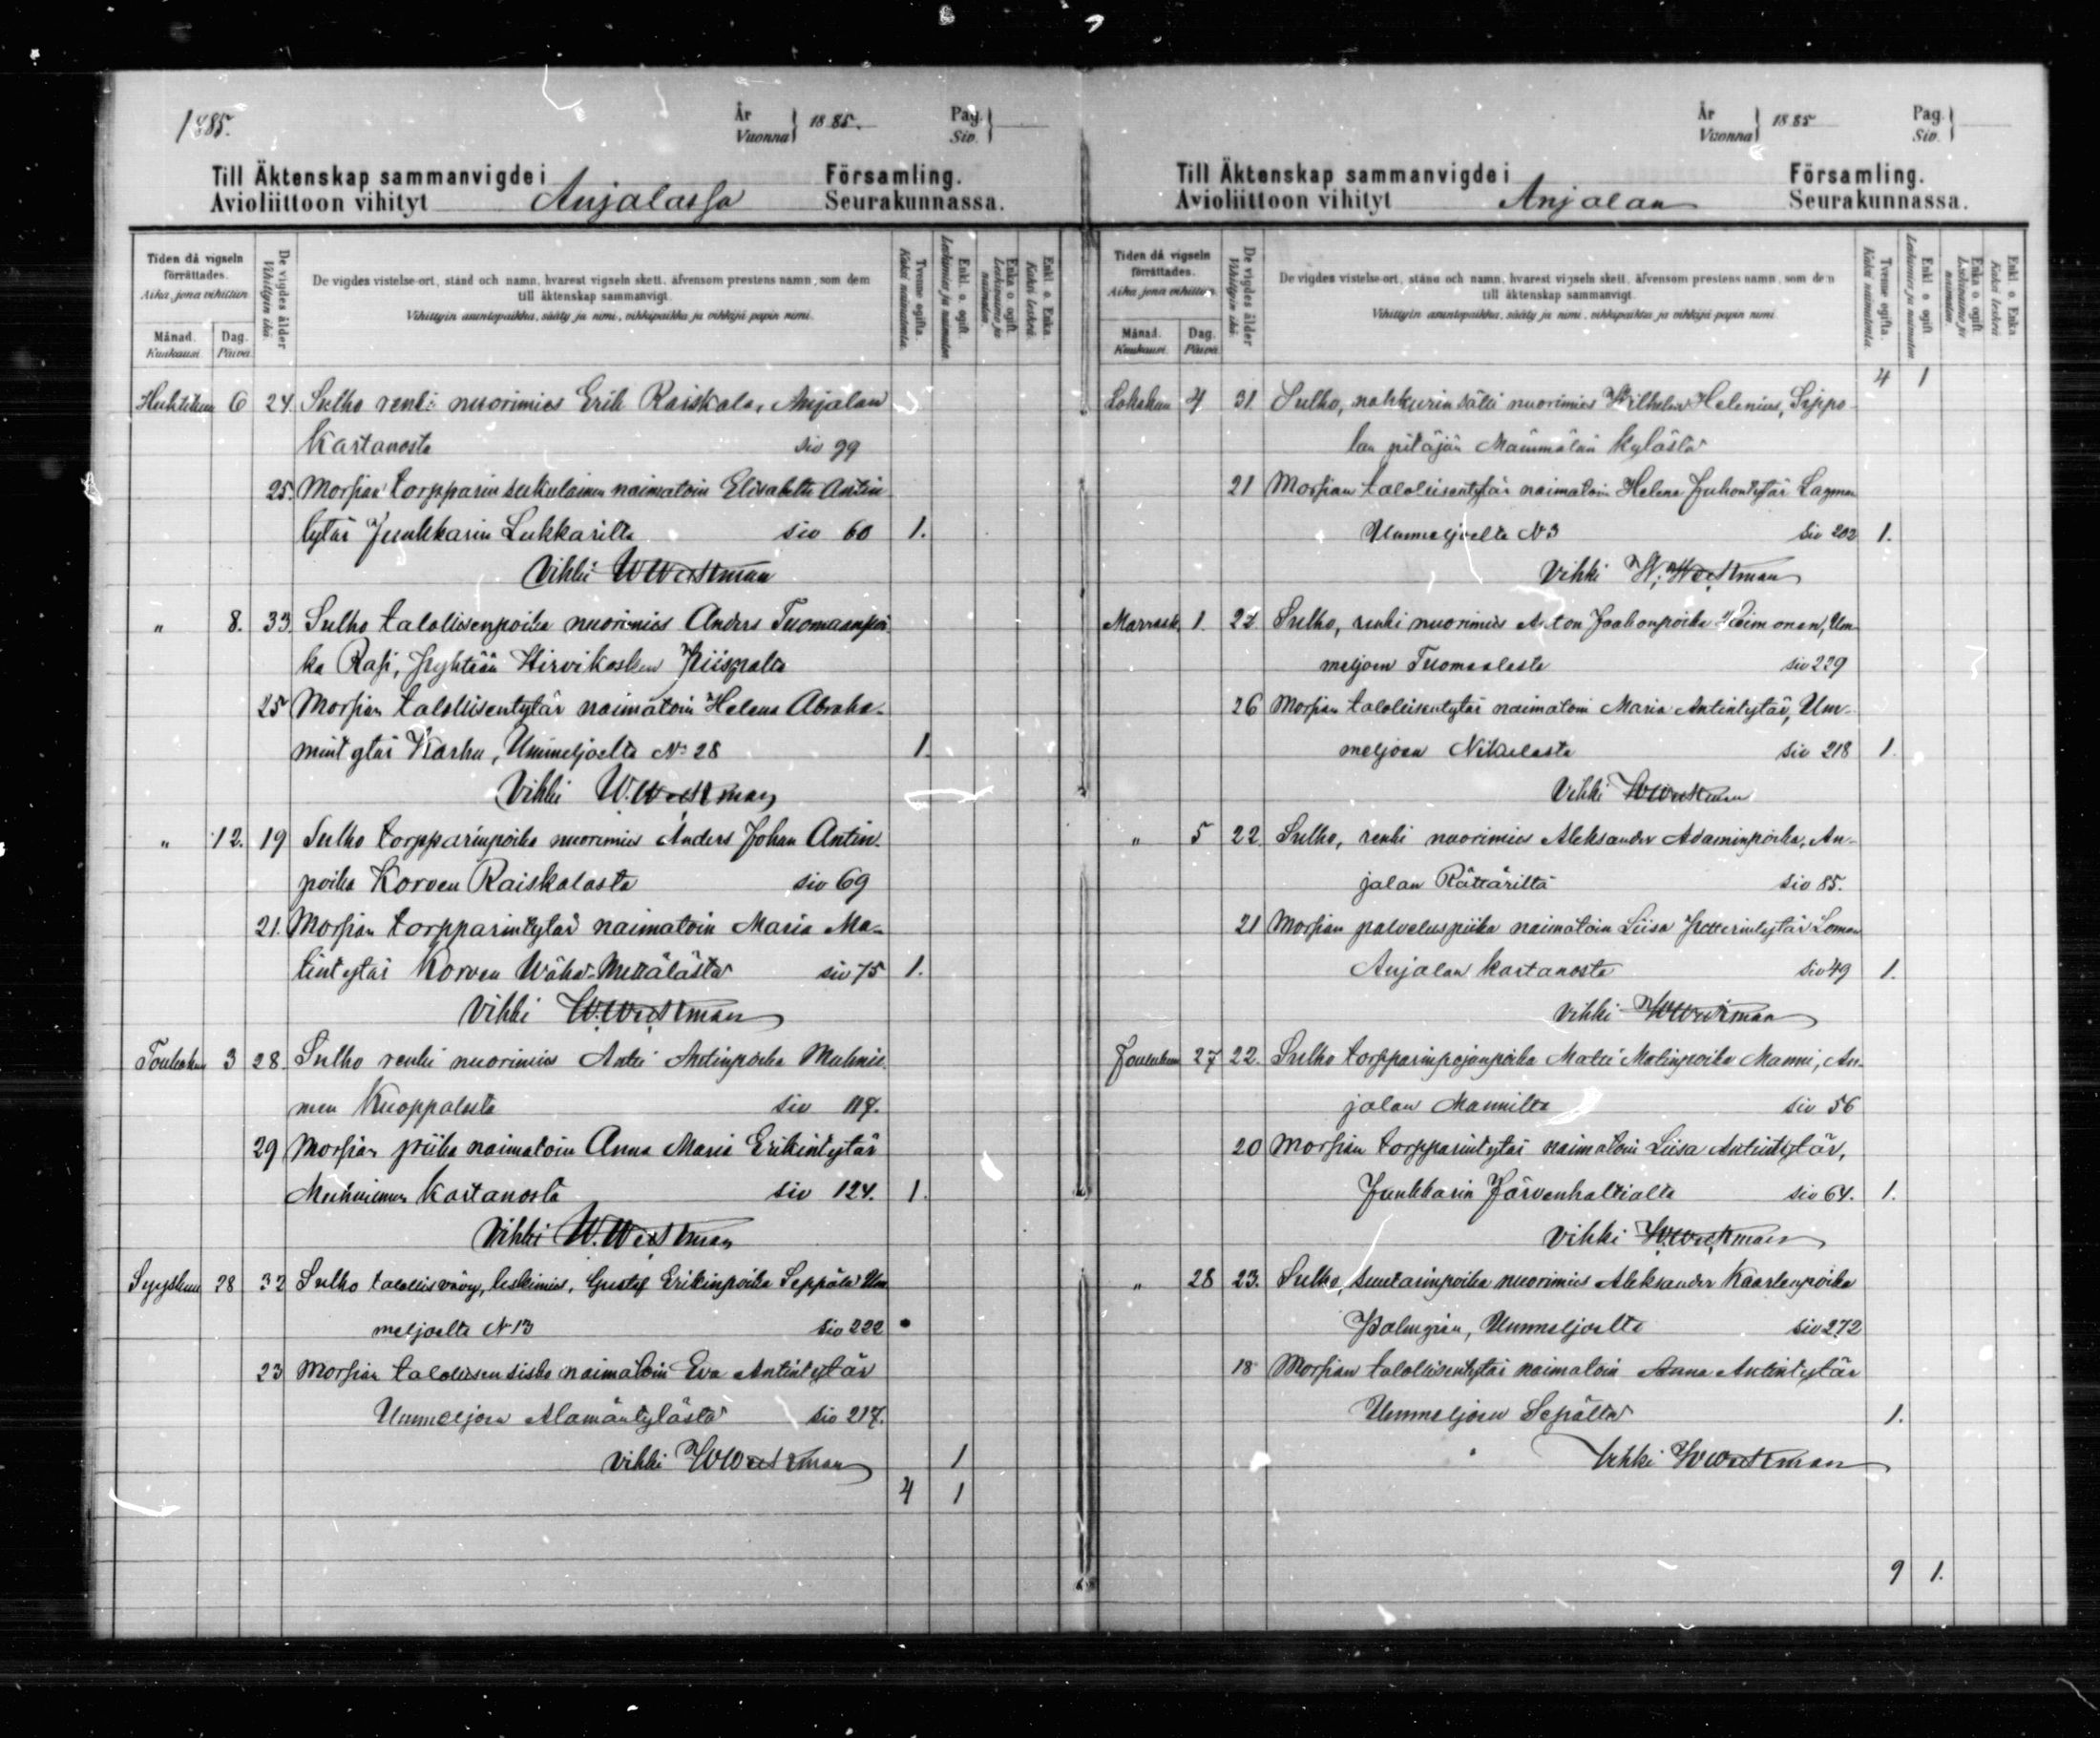 1885.
År
Vuonna } 1885.
Pag.
Siv. }
Till Äktenskap sammanvigde i Församling.
Avioliittoon vihityt Anjalassa Seurakunnassa.
Tiden då vigseln
förrättades.
Aika, jona vihittiin
Månad.
Kuukausi.
Dag.
Päivä.
De vigdes ålder
Vihittyin ikä.
De vigdes vistelse-ort, stånd och namn, hvarest vigseln skett, äfvensom prestens namn, som dem
till äktenskap sammanvigt.
Vihittyin asuntopaikka, sääty ja nimi, vihkipaikka ja vihkijä papin nimi.
Tvenne ogifta.
Kaksi naimatonta.
Enkl. o. ogift.
Leskimies ja naimaton
Enka o. ogift
Leskivaimo ja naimaton.
Enkl. o. Enka.
Kaksi leskeä.
Huhtikuu 6 24 Sulho renki nuorimies Erik Raiskala, Anjalan
Kartanosta siv 99
25. Morsian torpparin sukulainen naimatoin Elisabetta Antin
tytär Junkkarin Lukkarilta siv 60 1.
Vihki W Westman
" 8. 33. Sulho talollisenpoika nuorimies Anders Tuomaanpoi
ka Rasi, Pyhtään Hirvikosken Piispalta
25 Morsian talollisentytär naimatoin Helena Abraha-
mintytär Karhu, Ummeljoelta No 28 1.
Vihki W. Westman
" 12. 19 Sulho torpparinpoika nuorimies Anders Johan Antin
poika Korven Raiskalasta siv 69
21. Morsian torpparintytär naimatoin Maria Ma-
tintytär Korven Wähä-Mettälästä siv 75 1.
Vihki W. Westman
Toukokuu 3 28. Sulho renki nuorimies Antti Antinpoika Muhnie
men Kuoppalasta siv 117.
29 Morsian piika naimatoin Anna Maria Erikintytär
Muhniemen Kartanosta siv 124. 1.
Vihki W. Westman
Syyskuu 28 32 Sulho talollisvävy, leskimies, Gustaf Erikinpoika Seppälä Um
meljoelta No 13 siv 222
23 Morsian talollisen sisko naimatoin Eva Antintytär
Ummeljoen Alamäntylästä siv 217.
Vihki W Westman 1
4 1
År
Vuonna } 1885
Pag.
Siv. }
Till Äktenskap sammanvigde i Församling.
Avioliittoon vihityt Anjalan Seurakunnassa.
Tiden då vigseln
förrättades.
Aika, jona vihittiin
Månad.
Kuukausi.
Dag.
Päivä.
De vigdes ålder
Vihittyin ikä.
De vigdes vistelse-ort, stånd och namn, hvarest vigseln skett, äfvensom prestens namn, som dem
till äktenskap sammanvigt.
Vihittyin asuntopaikka, sääty ja nimi, vihkipaikka ja vihkijä papin nimi.
Tvenne ogifta.
Kaksi naimatonta.
Enkl. o ogift
Leskimies ja naimaton
Enka o. ogift
Leskivaimo ja naimaton
Enkl. o. Enka
Kaksi leskeä
4 1
Lokakuu 4 31 Sulho, nahkurin sälli nuorimies Wilhelm Helenius, Sippo-
lan pitäjän Mämmälän kylästä
21 Morsian talollisentytär naimatoin Helena Juhontytär Lagman
Ummeljoelta No 3 siv 202 1.
Vihki W. Westman
Marrask. 1. 27 Sulho, renki nuorimies Anton Jaakonpoika Heimonen, Um
meljoen Tuomaalasta siv 229
26 Morsian talollisentytär naimatoin Maria Antintytär, Um-
meljoen Nikulasta siv 218 1.
Vihki W Westman
" 5 22. Sulho, renki nuorimies Aleksander Adaminpoika, An-
jalan Rättäriltä siv 85.
21 Morsian palveluspiika naimatoin Liisa Petterintytär Loman
Anjalan kartanosta siv 49 1.
Vihki W Westman
Joulukuu 27 22. Sulho torpparinpojanpoika Matti Matinpoika Manni, An-
jalan Mannilta siv 56
20 Morsian torpparintytär naimatoin Liisa Antintytär,
Junkkarin Järvenhaltialta siv 64. 1.
Vihki W. Westman
" 28 23. Sulho, suutarinpoika nuorimies Aleksander Kaarlenpoika
Palmgren, Ummeljoelta siv 272
18 Morsian talollisentytär naimatoin Anna Antintytär
Ummeljoen Sepältä 1.
Vihki W Westman
9 1.